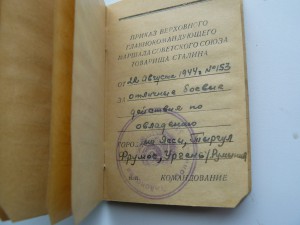 ПРИКАЗ ВЕРХОВНОГО
ГЛАВНОКОМАНДУЮЩЕГО
МАРШАЛА СОВЕТСКОГО СОЮЗА
ТОВАРИЩА СТАЛИНА
ОТ 22 августа 1944 г. № 153
ЗА отличные боевые
действия по
овладению
горо... Яссы, Тыргул
Фрумос, Унгены/Румыния
КОМАНДОВАНИЕ